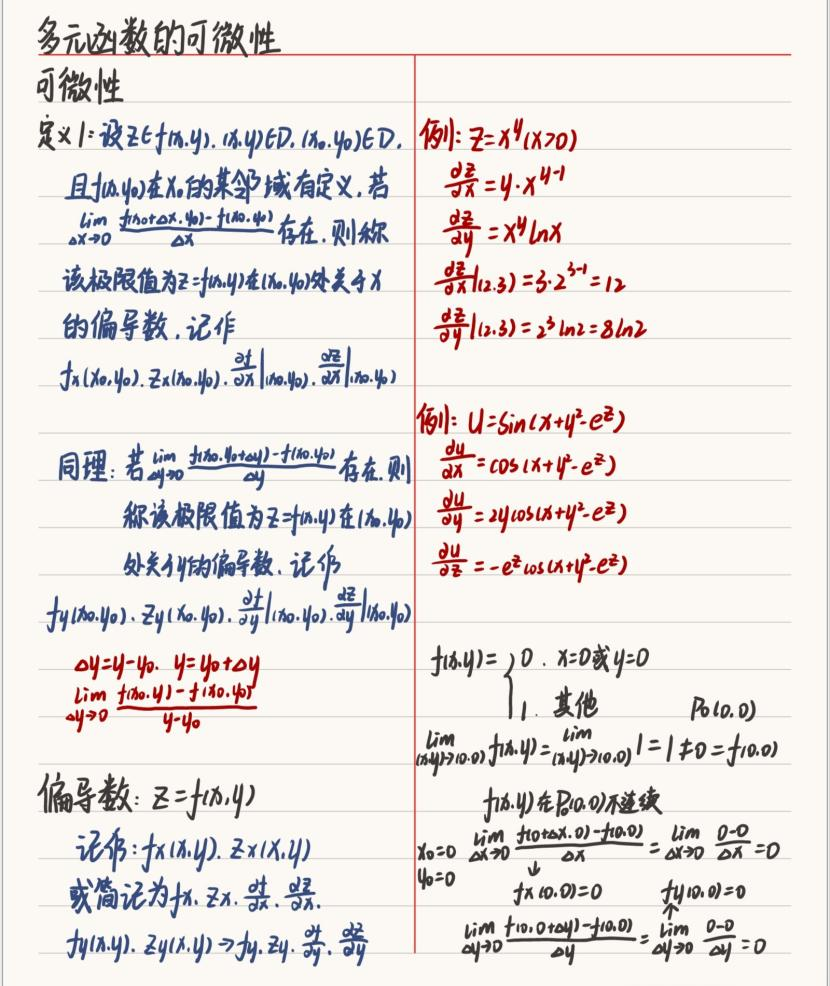 多元函数的可微性
可微性
定义1:设z∈f(x.y).(x.y)∈D.(x₀.y₀)∈D.
且f(x.y₀)在x₀的某邻域有定义.若
lim Δx→0 (f(x₀+Δx.y₀)-f(x₀.y₀))/Δx 存在.则称
该极限值为z=f(x.y)在(x₀.y₀)处关于x
的偏导数.记作
fx(x₀.y₀).zx(x₀.y₀).∂f/∂x|(x₀.y₀).∂z/∂x|(x₀.y₀)
同理:若lim Δy→0 (f(x₀.y₀+Δy)-f(x₀.y₀))/Δy 存在.则
称该极限值为z=f(x.y)在(x₀.y₀)
处关于y的偏导数.记作
fy(x₀.y₀).zy(x₀.y₀).∂f/∂y|(x₀.y₀).∂z/∂y|(x₀.y₀)
Δy=y-y₀. y=y₀+Δy
lim Δy→0 (f(x₀.y)-f(x₀.y₀))/(y-y₀)
偏导数:z=f(x.y)
记作:fx(x.y).zx(x.y)
或简记为fx.zx.∂f/∂x.∂z/∂x.
fy(x.y).zy(x.y)→fy.zy.∂f/∂y.∂z/∂y
例1:z=x^y(x>0)
∂z/∂x=y·x^(y-1)
∂z/∂y=x^y lnx
∂z/∂x|(2.3)=3·2^(3-1)=12
∂z/∂y|(2.3)=2³ln2=8ln2
例1:u=sin(x+y²-e^z)
∂u/∂x=cos(x+y²-e^z)
∂u/∂y=2ycos(x+y²-e^z)
∂u/∂z=-e^z cos(x+y²-e^z)
f(x.y)={0.x=0或y=0
1.其他 P₀(0.0)
lim (x.y)→(0.0) f(x.y)=lim (x.y)→(0.0) 1=1≠0=f(0.0)
f(x.y)在P₀(0.0)不连续
x₀=0 lim Δx→0 (f(0+Δx.0)-f(0.0))/Δx=lim Δx→0 (0-0)/Δx=0
y₀=0 ↓
fx(0.0)=0 fy(0.0)=0
↑
lim Δy→0 (f(0.0+Δy)-f(0.0))/Δy=lim Δy→0 (0-0)/Δy=0